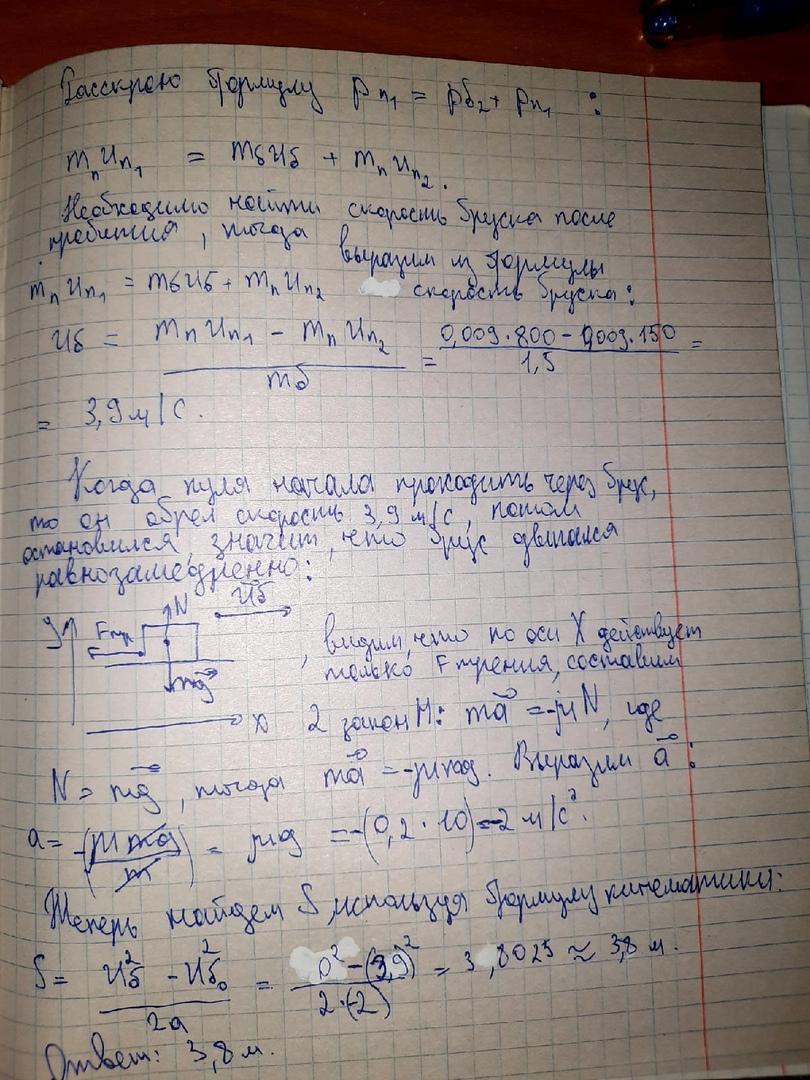 Расскрою формулу Pn₁ = Pб₂ + Pn₁ :
mₙUn₁ = mбUб + mₙUn₂.
Необходимо найти скорость бруска после
пробития, тогда выразим из формулы
mₙUn₁ = mбUб + mₙUn₂ скорость бруска:
Uб = (mₙUn₁ - mₙUn₂)/mб = (0,009·800 - 0,009·150)/1,5 =
= 3,9 м/с.
Когда пуля начала проходить через брус,
то он обрел скорость 3,9 м/с, потом
остановился, значит, что брус двигался
равнозамедленно:
y Fтр N Uб mg x
, видим, что по оси X действует
только F трения, составим
2 закон Н: ma⃗ = -μN, где
N = mg⃗, тогда ma⃗ = -μmg. Выразим a⃗:
a = -(μmg/m) = μg = -(0,2·10) = -2 м/с².
Теперь найдем S, используя формулу кинематики:
S = (Uб² - Uб₀²)/2a = (0² - (3,9)²)/2·(-2) = 3,8025 ≈ 3,8 м.
Ответ: 3,8 м.